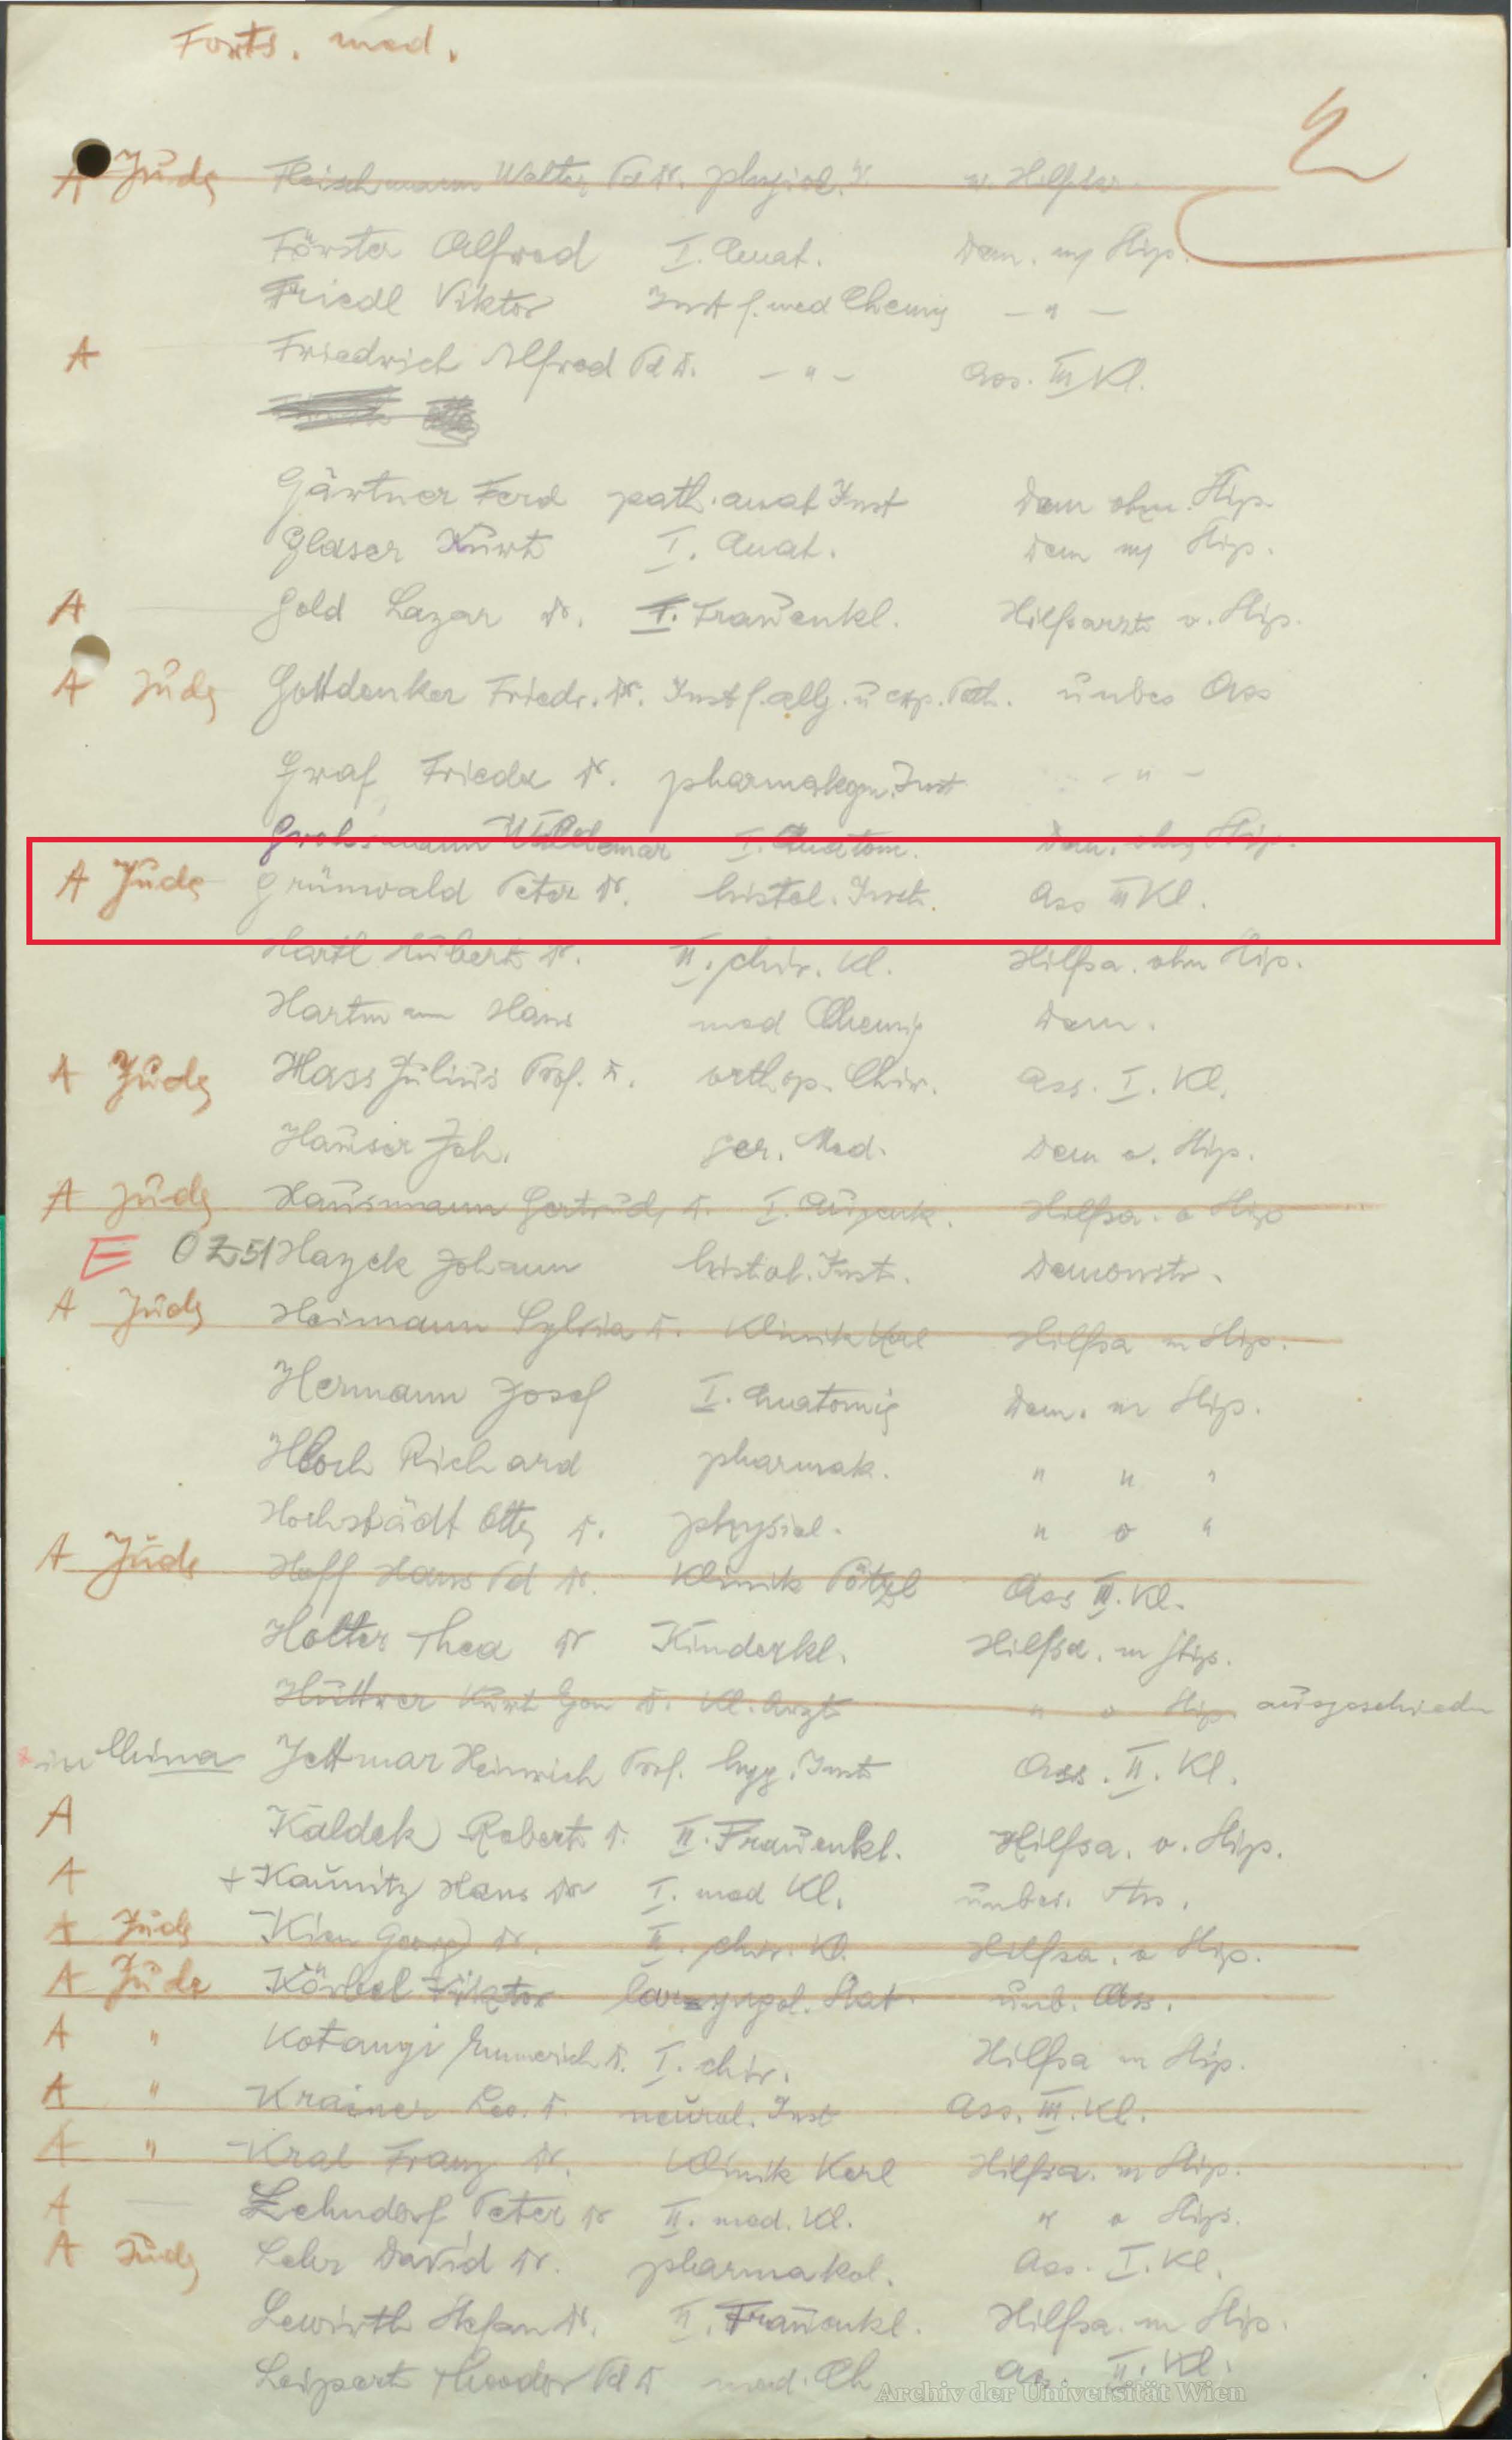 Forts. med.
2
A Jude Fleischmann Walter Pd Dr. physiol. w. Hilfskr.
Förster Alfred I. Anat. Dem. m/ Stip.
Friedl Viktor Inst f. med Chemie — " —
A Friedrich Alfred Pd Dr. — " — Ass. III Kl.
Gärtner Ferd path. anat Inst Dem ohne Stip.
Glaser Kurt I. Anat. Dem m/ Stip.
A Gold Lazar Dr. I. Frauenkl. Hilfsarzt o. Stip.
A Jude Gottdenker Friedr. Dr. Inst f. allg. u exp. Path. unbes Ass
Graf Frieda Dr. pharmakogn. Inst — " —
Grohsmann Waldemar I. Anatom. Dem. ohne Stip.
A Jude Grünwald Peter Dr. histol. Inst. Ass III Kl.
Hartl Hubert Dr. II. chir. Kl. Hilfsa. ohne Stip.
Hartmann Hans med Chemie Dem.
A Jude Hass Julius Prof. Dr. orthop. Chir. Ass. I. Kl.
Hauser Joh. ger. Med. Dem o. Stip.
A Jude Hausmann Gertrude Dr. I. Augenk. Hilfsa. o Stip
E OZ 51 Hayek Johann histol. Inst. Demonstr.
A Jude Heimann Sylvia Dr. Klinik Kerl Hilfsa m Stip.
Hermann Josef I. Anatomie Dem. m Stip.
Hloch Richard pharmak. " " "
Hochstädt Otto Dr. physiol. " o "
A Jude Hoff Hans Pd Dr. Klinik Pötzl Ass III. Kl.
Holter Thea Dr Kinderkl. Hilfsa. m Stip.
Hüttner Kurt Dr. Kl. Arzt " o Stip. ausgeschieden
in China Jettmar Heinrich Prof. hyg. Inst Ass. II. Kl.
A Kaldek Robert Dr. II. Frauenkl. Hilfsa. o. Stip.
A + Kaunitz Hans Dr I. med Kl. unbes. Ass.
A Jude Kien Georg Dr. II. chir. Kl. Hilfsa. o Stip.
A Jude Körbel Viktor laryngol. unb. Ass.
A " Kotanyi Emmerich Dr. I. chir. Hilfsa m Stip.
A " Krainer Leo. Dr. neurol. Inst Ass. III. Kl.
A " Kral Franz Dr. Klinik Kerl Hilfsa. m Stip.
A — Lehndorf Peter Dr II. med. Kl. " o Stip.
A Jude Lehr David Dr. pharmakol. Ass. I. Kl.
Lewirth Stefan Dr. II. Frauenkl. Hilfsa. m Stip.
Leipert Theodor Pd Dr med. Ch Ass. II. Kl.
Archiv der Universität Wien